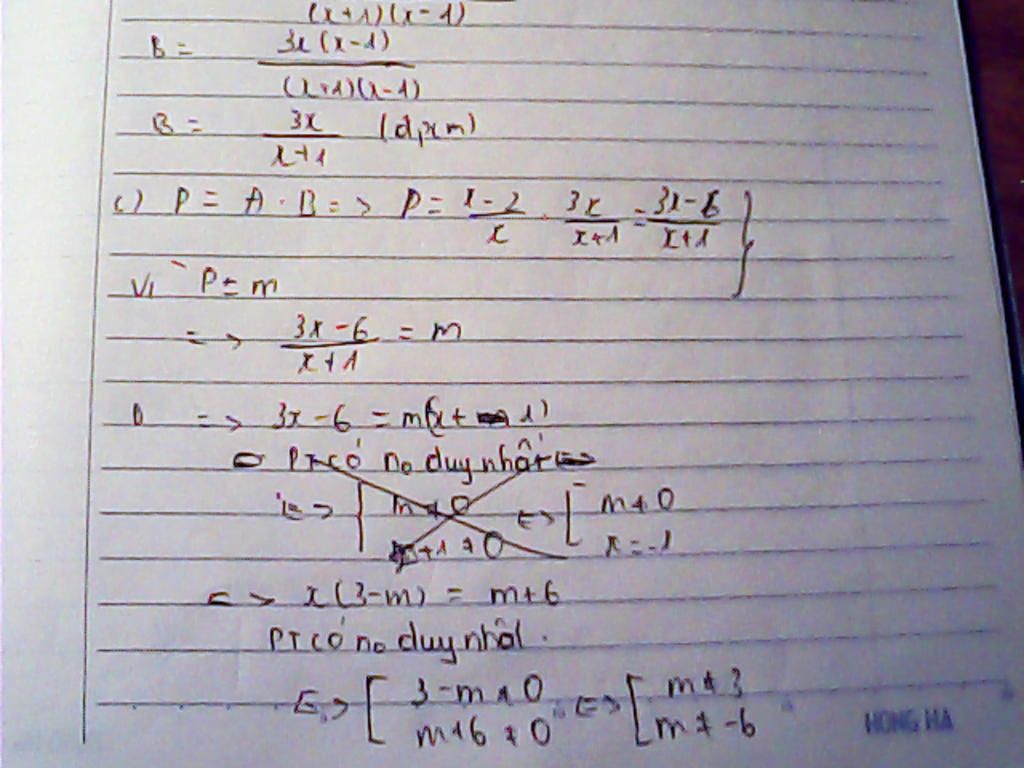 (x+1)(x-1)
B = 3x(x-1) / (x+1)(x-1)
B = 3x / x+1 (đpcm)
c) P = A . B => P = x-2 / x . 3x / x+1 = 3x-6 / x+1 }
Vì P = m
=> 3x-6 / x+1 = m
=> 3x-6 = m(x+ 1)
PT có no duy nhất <=>
<=> { m ≠ 0 <=> [ m ≠ 0
x+1 ≠ 0 x = -1
<=> x(3-m) = m+6
PT có no duy nhất.
<=> [ 3-m ≠ 0 <=> [ m ≠ 3
m+6 ≠ 0 m ≠ -6
HONG HA